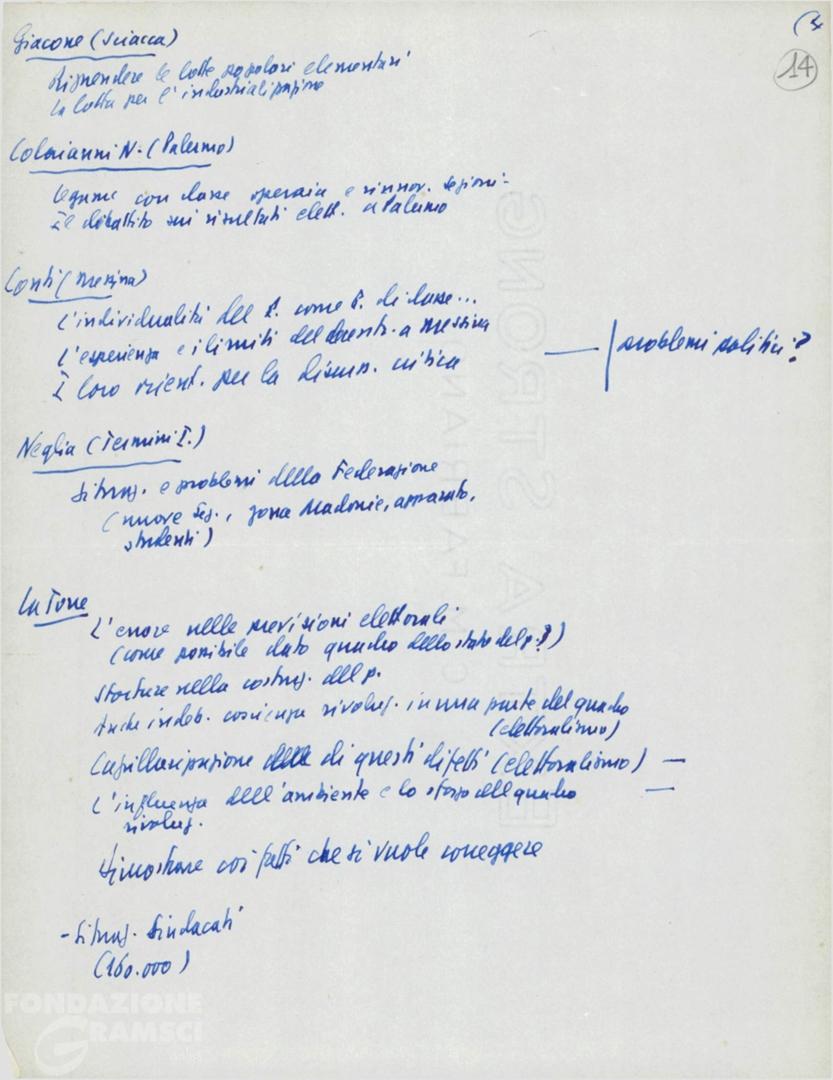 (3
14
Giacone (Sciacca)
Riprendere le lotte popolari elementari
La lotta per l'industrializzazione
Colajanni N. (Palermo)
Legame con classe operaia e rinnov. sezioni-
Il dibattito sui risultati elett. a Palermo
Conti (Messina)
L'individualità del P. come P. di classe...
L'esperienza e i limiti del decentr. a Messina
Il loro orient. per la discuss. critica
problemi politici?
Neglia (Termini I.)
Situaz. e problemi della Federazione
(nuove Seg., zona Madonie, apparato,
studenti)
La Torre
L'errore nelle previsioni elettorali
(come possibile dato quadro dello stato del p.?)
Storture nella costruz. del p.
Anche indeb. coscienza rivoluz. in una parte del quadro
(elettoralismo)
Capillarizzazione di questi difetti (elettoralismo) —
L'influenza dell'ambiente e lo sforzo del quadro —
rivoluz.
Dimostrare coi fatti che si vuole correggere
- Situaz. Sindacati
(160.000)
EXTRA STRONG
FONDAZIONE
GRAMSCI